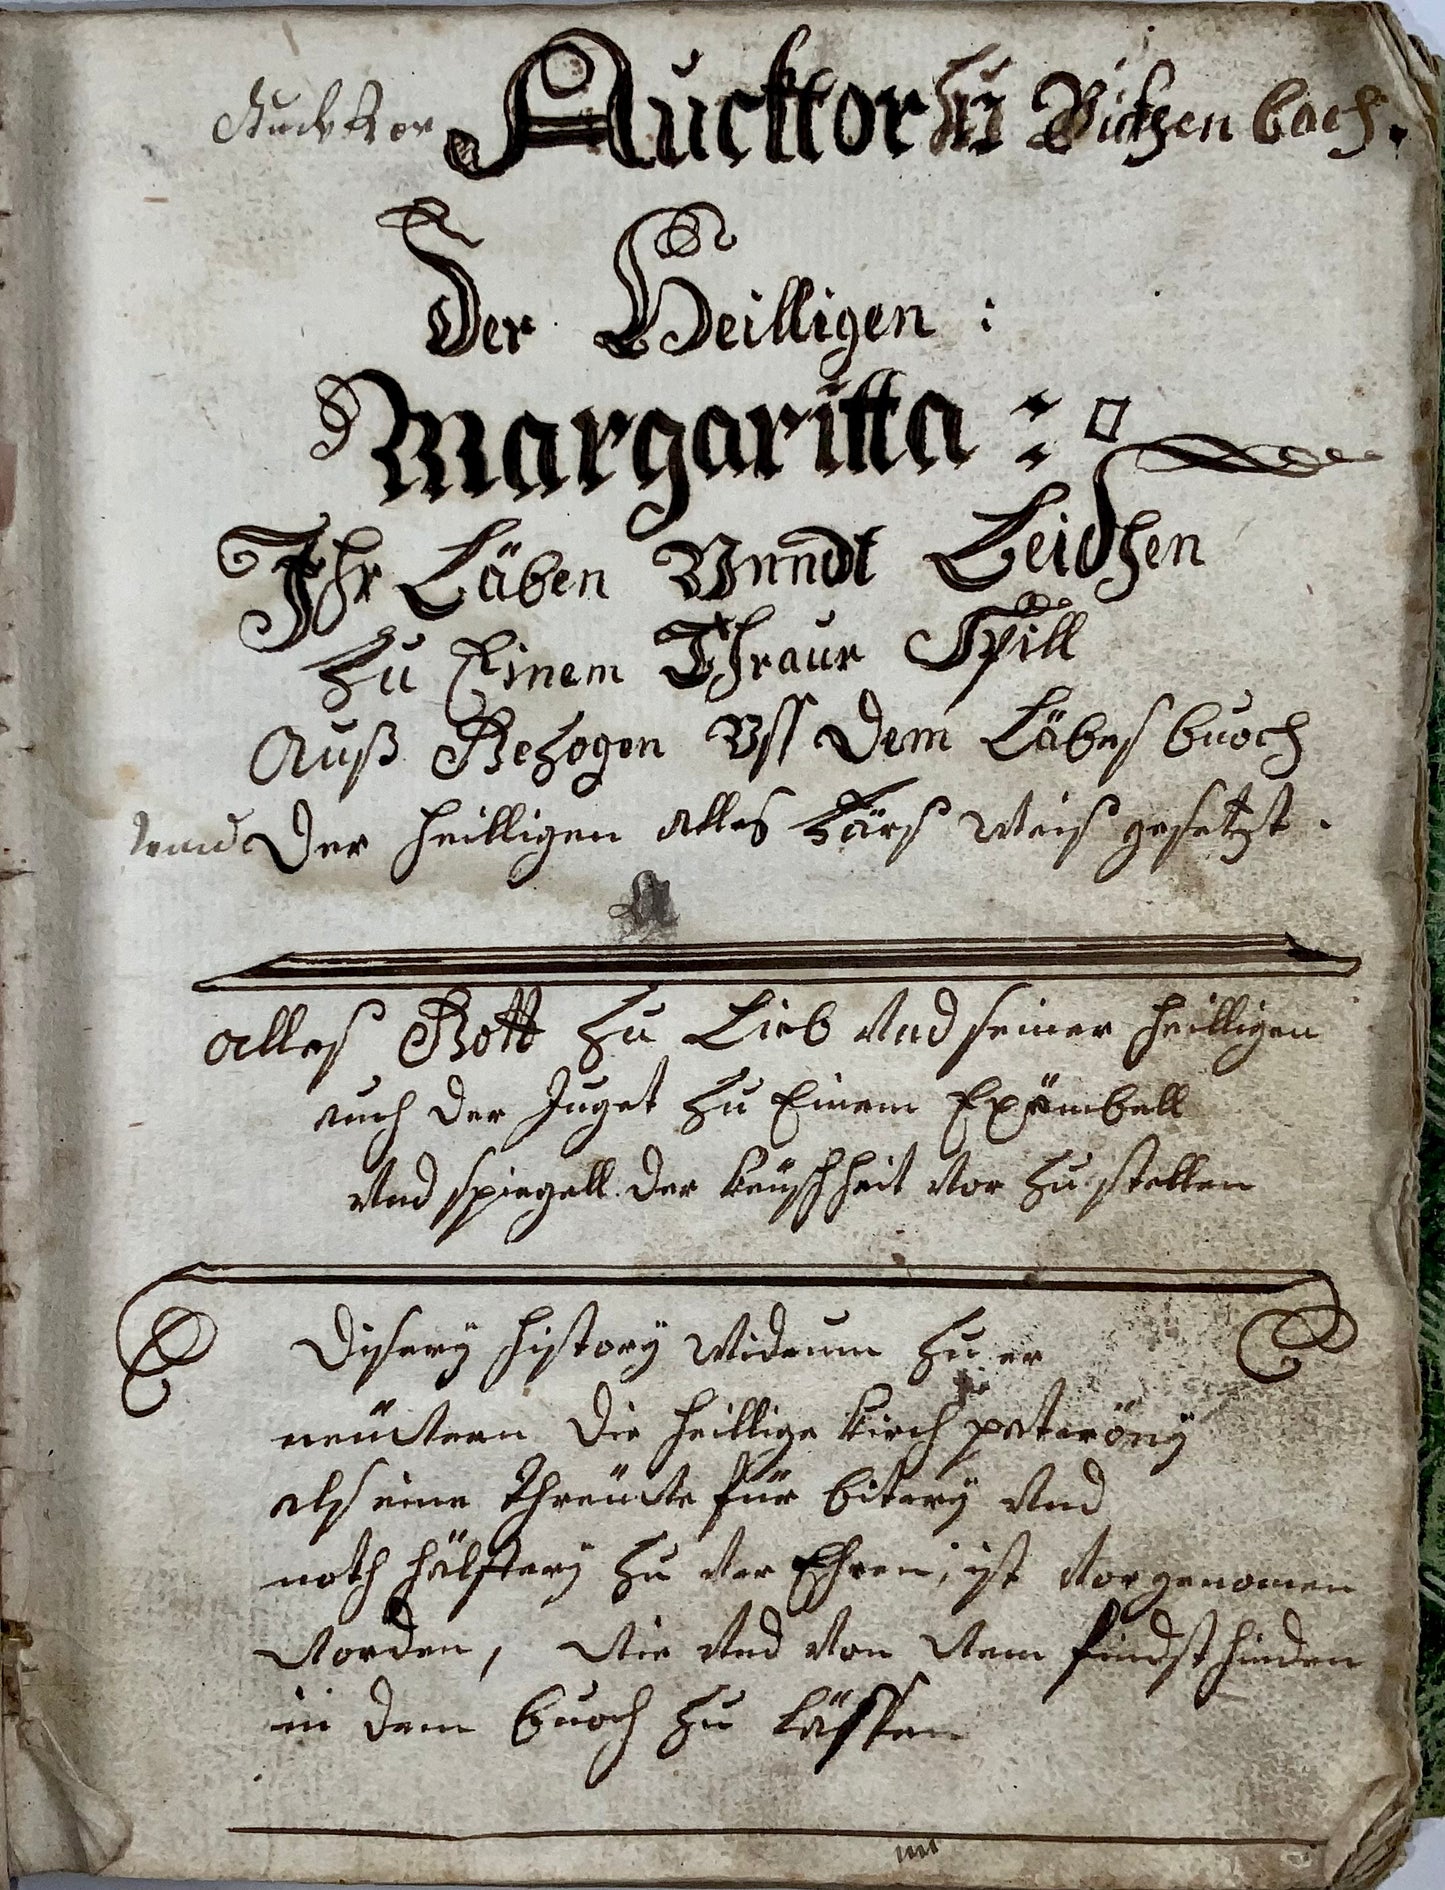 Auckttor Aucktor zu Bichsen bach.
Der Heilligen :
Margaritta :
Ihr Läben Vnndt Leidhen
Zu Einem Thraur Spill
Auß Gezogen Vss dem Läbes buoch
Der Heilligen alles Värs weis gesetzt .
alles Gott zu Lieb vnd seiner heilligen
auch der Juget zu Einem Exämbell
vnd spiegell der keüschheit vor zu stellen
Disery history widrum zu er
neüweren die heillige kirch pateröny
als eine threüwe für bitery vnd
noth hälfery zu ver Ehren, ist vorgenomen
worden, wie vnd von wem findst hinden
in dem buoch zu lässen